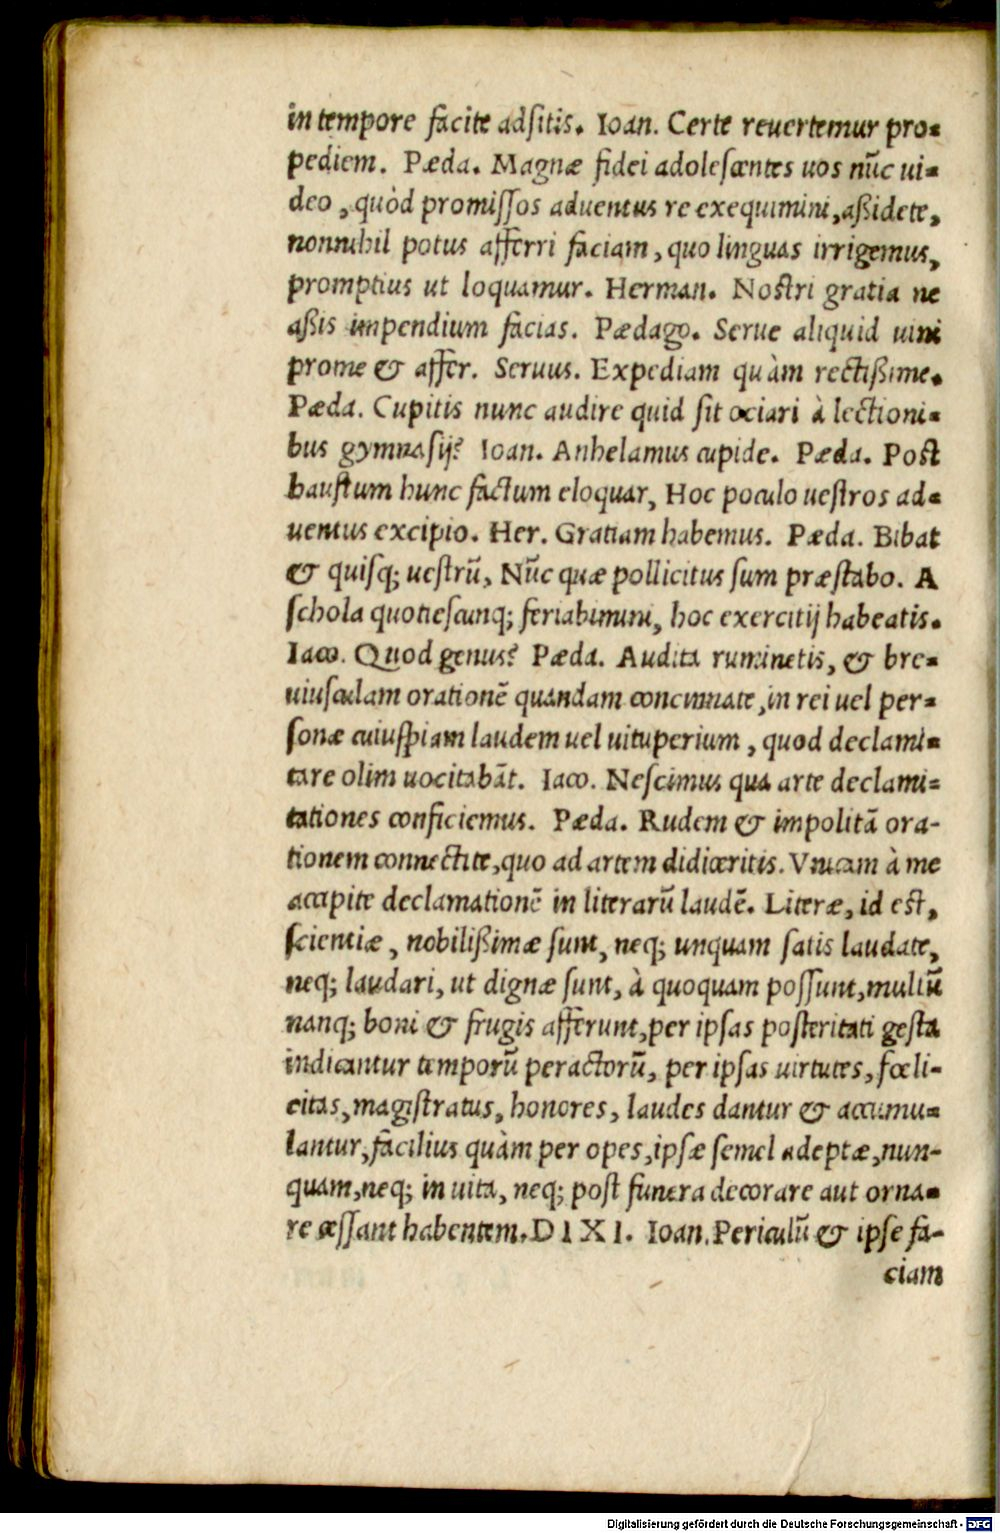 in tempore facite adſitis. Ioan. Certe reuertemur pro-
pediem. Pæda. Magnæ fidei adoleſcentes uos nūc ui-
deo, quòd promiſſos aduentus re exequimini, aßidete,
nonnihil potus afferri faciam, quo linguas irrigemus,
promptius ut loquamur. Herman. Noſtri gratia ne
aßis impendium facias. Pædago. Serue aliquid uini
prome & affer. Seruus. Expediam quàm rectißime.
Pæda. Cupitis nunc audire quid ſit ociari à lectioni-
bus gymnaſij? Ioan. Anhelamus cupide. Pæda. Poſt
hauſtum hunc factum eloquar, Hoc poculo ueſtros ad-
uentus excipio. Her. Gratiam habemus. Pæda. Bibat
& quiſq; ueſtrū, Nūc quæ pollicitus ſum præſtabo. A
ſchola quotieſcunq; feriabimini, hoc exercitij habeatis.
Iaco. Quod genus? Pæda. Audita ruminetis, & bre-
uiuſculam orationē quandam concinnate, in rei uel per-
ſonæ cuiuſpiam laudem uel uituperium, quod declami-
tare olim uocitabāt. Iaco. Neſcimus qua arte declami-
tationes conficiemus. Pæda. Rudem & impolitā ora-
tionem connectite, quo ad artem didiceritis. Vnicam à me
accipite declamationē in literarū laudē. Literæ, id eſt,
ſcientiæ, nobilißimæ ſunt, neq; unquam ſatis laudate,
neq; laudari, ut dignæ ſunt, à quoquam poſſunt, multū
nanq; boni & frugis afferunt, per ipſas poſteritati geſta
indicantur temporū peractorū, per ipſas uirtutes, fœli-
citas, magiſtratus, honores, laudes dantur & accumu-
lantur, facilius quàm per opes, ipſæ ſemel adeptæ, nun-
quam, neq; in uita, neq; poſt funera decorare aut orna-
re ceſſant habentem. DIXI. Ioan. Periculū & ipſe fa-
ciam
Digitalisierung gefördert durch die Deutsche Forschungsgemeinschaft - DFG